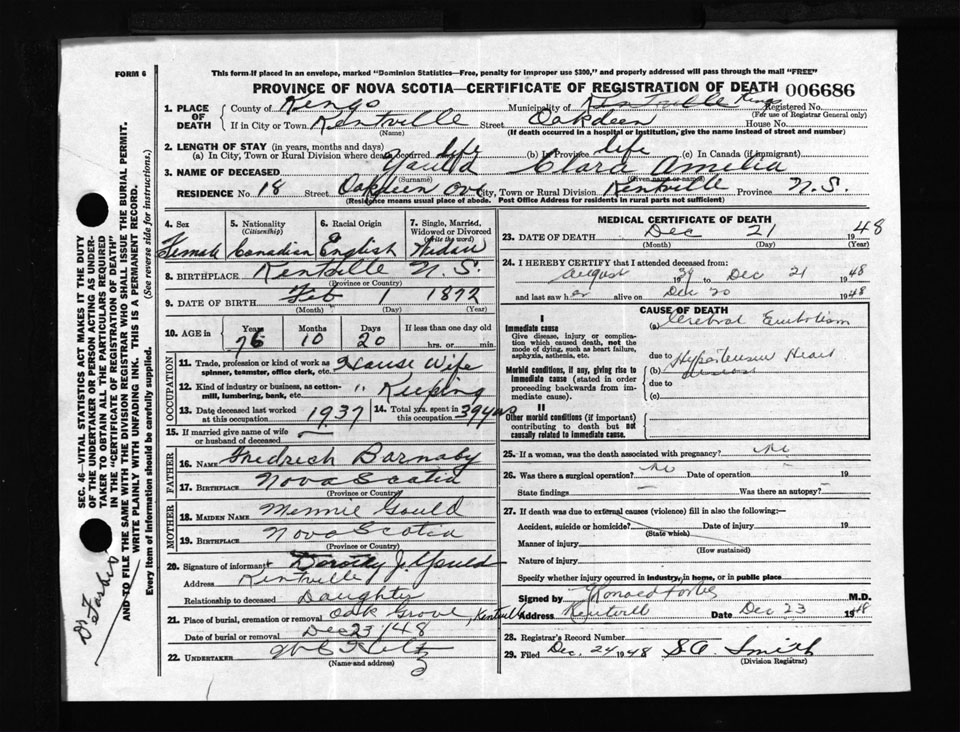 FORM 6
This form if placed in an envelope, marked "Dominion Statistics—Free, penalty for improper use $300," and properly addressed will pass through the mail "FREE"
PROVINCE OF NOVA SCOTIA—CERTIFICATE OF REGISTRATION OF DEATH 006686
1. PLACE OF DEATH County of Kings Municipality of Kentville Kings Registered No.
(For use of Registrar General only)
If in City or Town Kentville Street Oakdeen House No.
(Name) (If death occurred in a hospital or institution, give the name instead of street and number)
2. LENGTH OF STAY (in years, months and days)
(a) In City, Town or Rural Division where death occurred life (b) In Province life (c) In Canada (if immigrant)
3. NAME OF DECEASED Gould Clara Amelia
(Surname) (Given name or names)
RESIDENCE No. 18 Street Oakdeen Ave City, Town or Rural Division Kentville Province N.S.
(Residence means usual place of abode. Post Office Address for residents in rural parts not sufficient)
4. Sex 5. Nationality (Citizenship) 6. Racial Origin 7. Single, Married, Widowed or Divorced (write the word)
Female Canadian English Widow
8. BIRTHPLACE Kentville N.S.
9. DATE OF BIRTH Feb 1 1872
(Month) (Day) (Year)
10. AGE in Years Months Days If less than one day old
76 10 20 hrs. or min.
OCCUPATION
11. Trade, profession or kind of work as spinner, teamster, office clerk, etc. House Wife
12. Kind of industry or business, as cotton-mill, lumbering, bank, etc. " Keeping
13. Date deceased last worked at this occupation 1937 14. Total yrs. spent in this occupation 39 years
15. If married give name of wife or husband of deceased —
FATHER
16. NAME Fredrich Barnaby
17. BIRTHPLACE Nova Scotia
(Province or Country)
MOTHER
18. MAIDEN NAME Minnie Gould
19. BIRTHPLACE Nova Scotia
(Province or Country)
20. Signature of informant Dorothy J. Gould
Address Kentville
Relationship to deceased Daughter
21. Place of burial, cremation or removal Oak Grove, Kentville
Date of burial or removal Dec 23/48
22. UNDERTAKER
(Name and address)
MEDICAL CERTIFICATE OF DEATH
23. DATE OF DEATH Dec 21 1948
(Month) (Day) (Year)
24. I HEREBY CERTIFY that I attended deceased from:
August 1939 to Dec 21 1948
and last saw her alive on Dec 20 1948
CAUSE OF DEATH
I
Immediate cause
Give disease, injury or complication which caused death, not the mode of dying, such as heart failure, asphyxia, asthenia, etc.
(a) Cerebral Embolism
due to
Morbid conditions, if any, giving rise to immediate cause (stated in order proceeding backwards from immediate cause).
(b) Hypertensive Heart disease
due to
(c)
II
Other morbid conditions (if important) contributing to death but not causally related to immediate cause.
25. If a woman, was the death associated with pregnancy? no
26. Was there a surgical operation? no Date of operation 19
State findings Was there an autopsy?
27. If death was due to external causes (violence) fill in also the following:—
Accident, suicide or homicide? Date of injury 19
(State which)
Manner of injury
(How sustained)
Nature of injury
Specify whether injury occurred in industry, in home, or in public place
Signed by Ronald Forbes M.D.
Address Kentville Date Dec 23 1948
28. Registrar's Record Number
29. Filed Dec. 24 1948 S.A. Smith
(Division Registrar)
SEC. 46—VITAL STATISTICS ACT MAKES IT THE DUTY
OF THE UNDERTAKER OR PERSON ACTING AS UNDER-
TAKER TO OBTAIN ALL THE PARTICULARS REQUIRED
IN THE "CERTIFICATE OF REGISTRATION OF DEATH"
AND TO FILE THE SAME WITH THE DIVISION REGISTRAR WHO SHALL ISSUE THE BURIAL PERMIT.
WRITE PLAINLY WITH UNFADING INK. THIS IS A PERMANENT RECORD.
Every item of information should be carefully supplied. (See reverse side for instructions.)